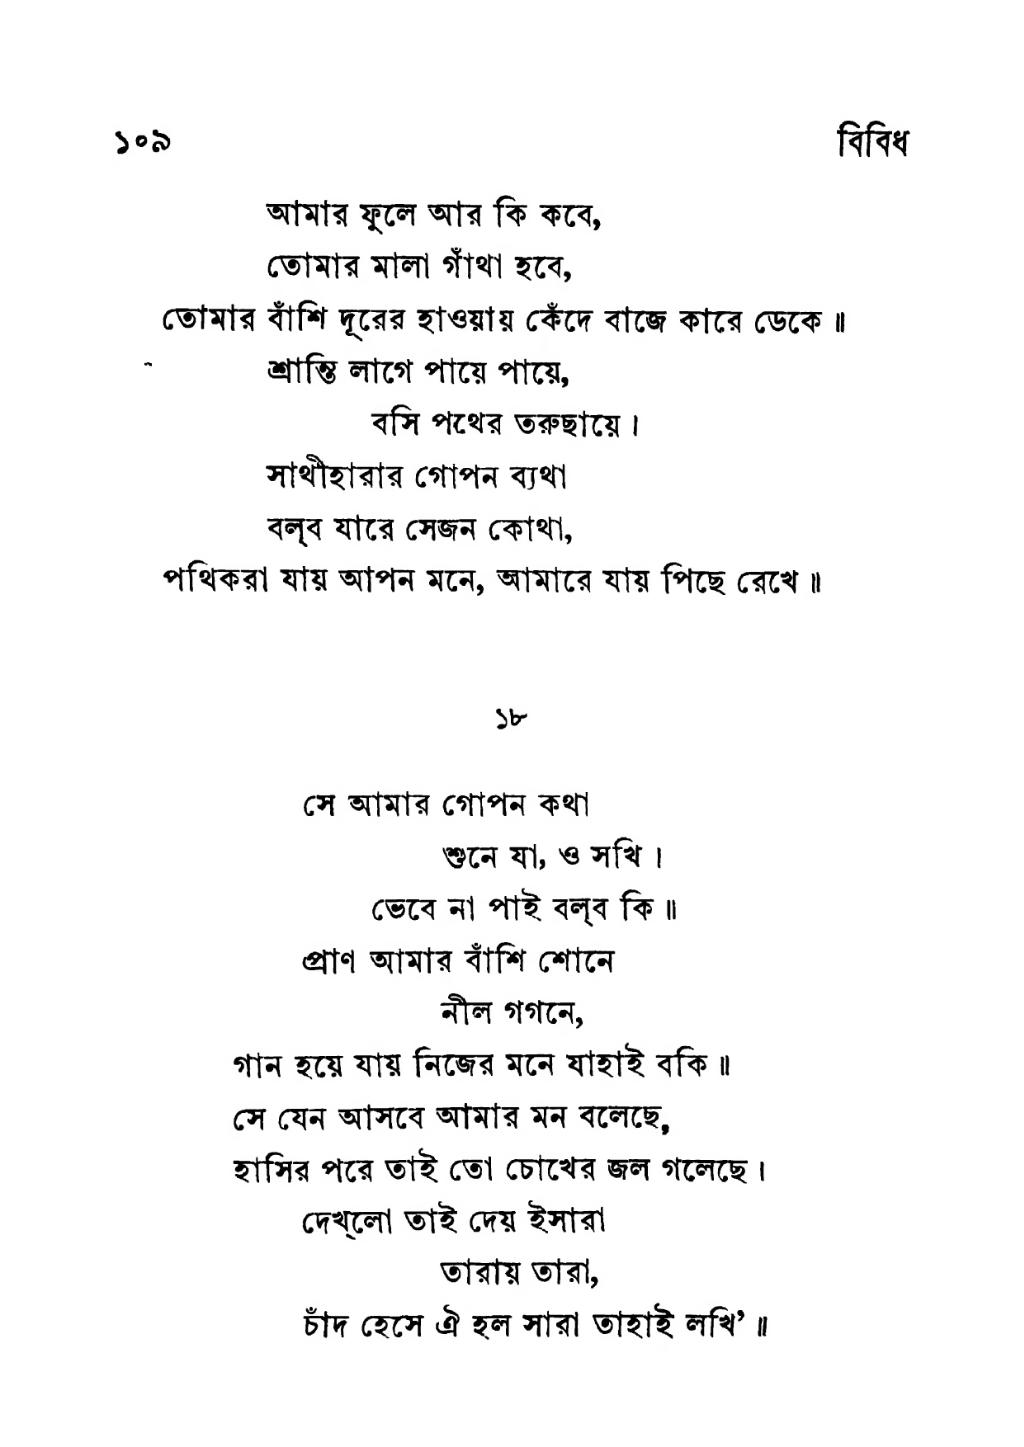 ১০৯ বিবিধ
আমার ফুলে আর কি কবে,
তোমার মালা গাঁথা হবে,
তোমার বাঁশি দূরের হাওয়ায় কেঁদে বাজে কারে ডেকে॥
শ্রান্তি লাগে পায়ে পায়ে,
বসি পথের তরুছায়ে।
সাথীহারার গোপন ব্যথা
বল্‌ব যারে সেজন কোথা,
পথিকরা যায় আপন মনে, আমারে যায় পিছে রেখে॥
১৮
সে আমার গোপন কথা
শুনে যা, ও সখি।
ভেবে না পাই বল্‌ব কি॥
প্রাণ আমার বাঁশি শোনে
নীল গগনে,
গান হয়ে যায় নিজের মনে যাহাই বকি॥
সে যেন আসবে আমার মন বলেছে,
হাসির পরে তাই তো চোখের জল গলেছে।
দেখ্‌লো তাই দেয় ইসারা
তারায় তারা,
চাঁদ হেসে ঐ হল সারা তাহাই লখি’॥